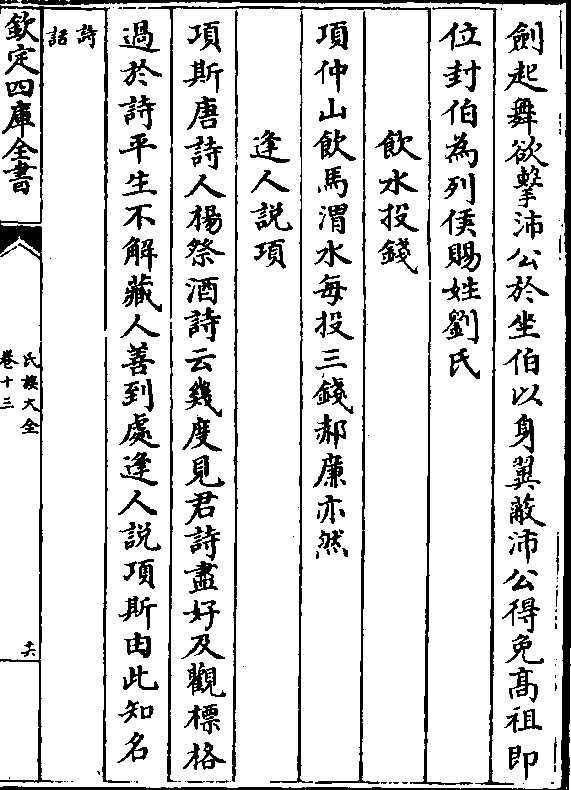 劍起舞欲擊沛公於坐伯以身翼蔽沛公得免高祖即
位封伯為列侯賜姓劉氏
飲水投錢
項仲山飲馬渭水每投三錢郝廉亦然
逢人説項
項斯唐詩人楊祭酒詩云幾度見君詩盡好及觀標格
過於詩平生不解藏人善到處逢人説項斯由此知名
詩話
欽定四庫全書
氏族大全
卷十三
六